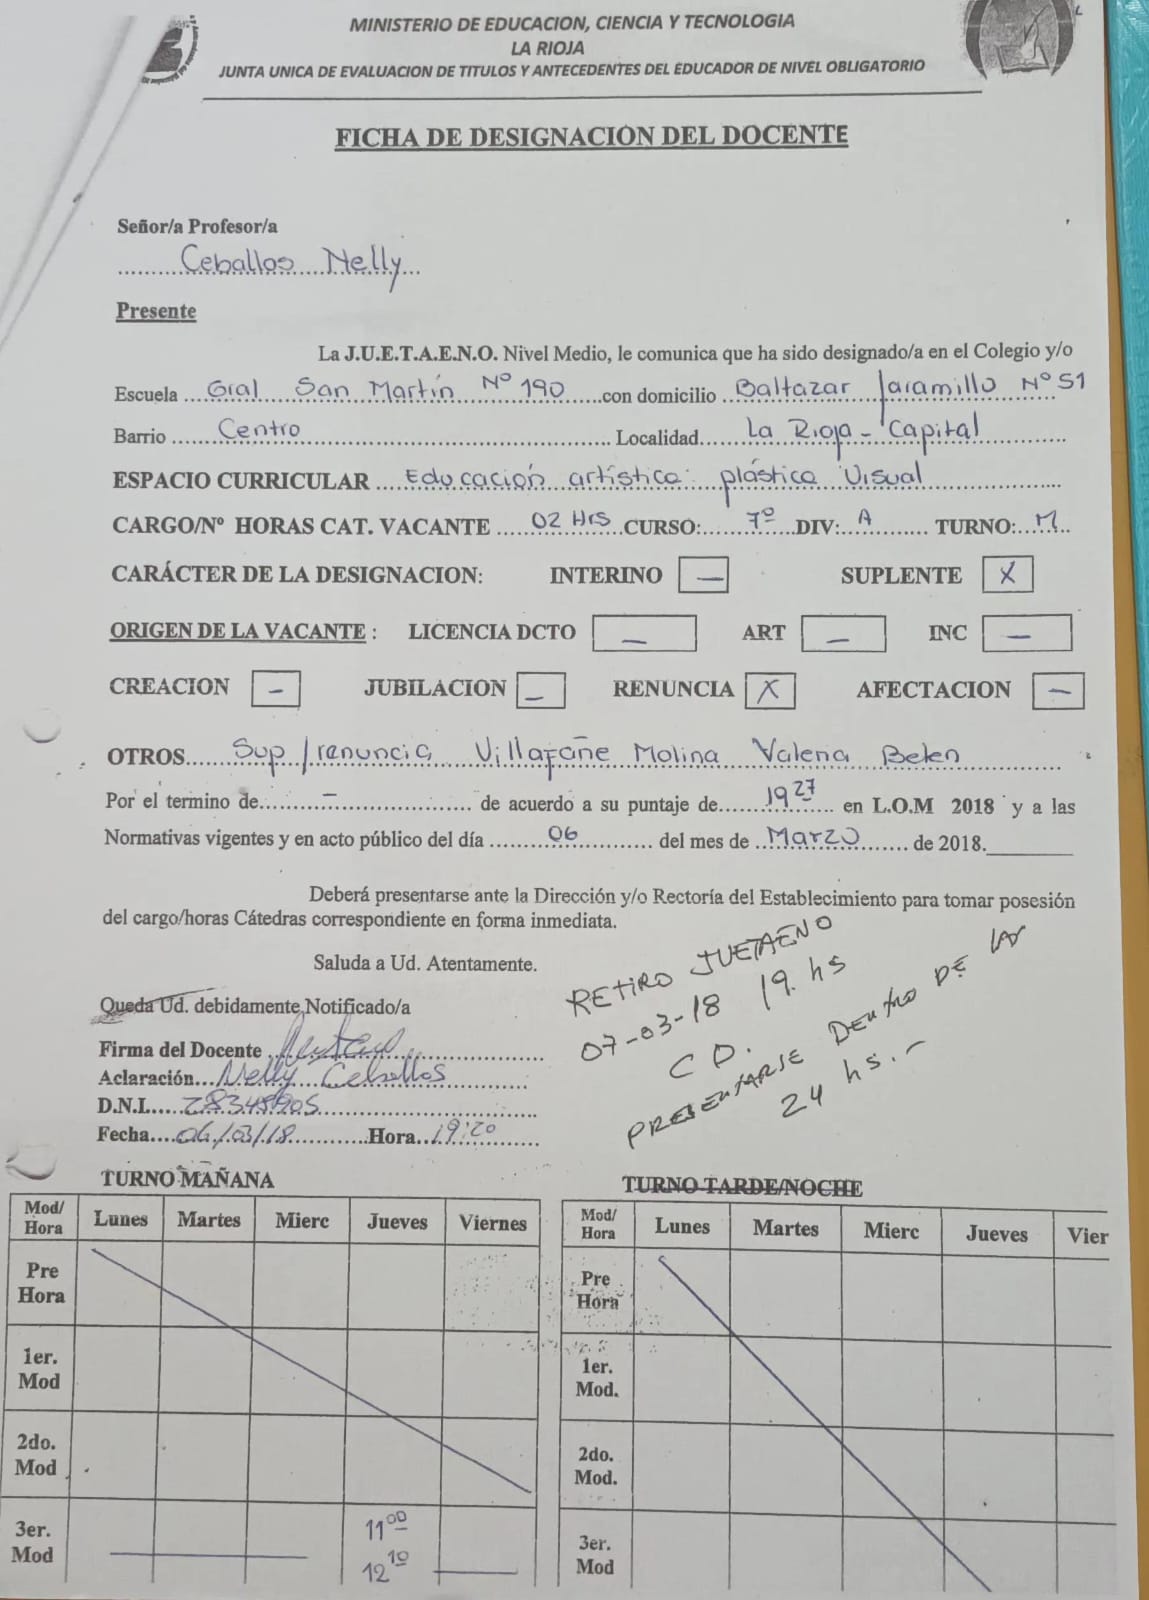 MINISTERIO DE EDUCACION, CIENCIA Y TECNOLOGIA
LA RIOJA
JUNTA UNICA DE EVALUACION DE TITULOS Y ANTECEDENTES DEL EDUCADOR DE NIVEL OBLIGATORIO
FICHA DE DESIGNACION DEL DOCENTE
Señor/a Profesor/a
Ceballos Nelly
Presente
La J.U.E.T.A.E.N.O. Nivel Medio, le comunica que ha sido designado/a en el Colegio y/o
Escuela Gral San Martín Nº 190 con domicilio Baltazar Jaramillo Nº 51
Barrio Centro Localidad La Rioja - Capital
ESPACIO CURRICULAR Educación artística: plástica Visual
CARGO/Nº HORAS CAT. VACANTE 02 Hrs CURSO: 7º DIV: A TURNO: M
CARÁCTER DE LA DESIGNACION: INTERINO — SUPLENTE X
ORIGEN DE LA VACANTE : LICENCIA DCTO — ART — INC —
CREACION - JUBILACION - RENUNCIA X AFECTACION -
OTROS Sup/renuncia Villafañe Molina Valeria Belen
Por el termino de - de acuerdo a su puntaje de 19 27 en L.O.M 2018 y a las
Normativas vigentes y en acto público del día 06 del mes de Marzo de 2018.
Deberá presentarse ante la Dirección y/o Rectoría del Establecimiento para tomar posesión
del cargo/horas Cátedras correspondiente en forma inmediata.
Saluda a Ud. Atentamente.
RETIRO JUETAENO
07-03-18 19. hs
C D.
PRESENTARSE DENTRO DE LAS
24 hs.-
Queda Ud. debidamente Notificado/a
Firma del Docente
Aclaración Nelly Ceballos
D.N.I. 28348905
Fecha 06/03/18 Hora 19:20
TURNO MAÑANA
Mod/Hora Lunes Martes Mierc Jueves Viernes
Pre Hora
1er. Mod
2do. Mod
3er. Mod 11 00 12 10
TURNO TARDE/NOCHE
Mod/Hora Lunes Martes Mierc Jueves Vier
Pre Hora
1er. Mod.
2do. Mod.
3er. Mod